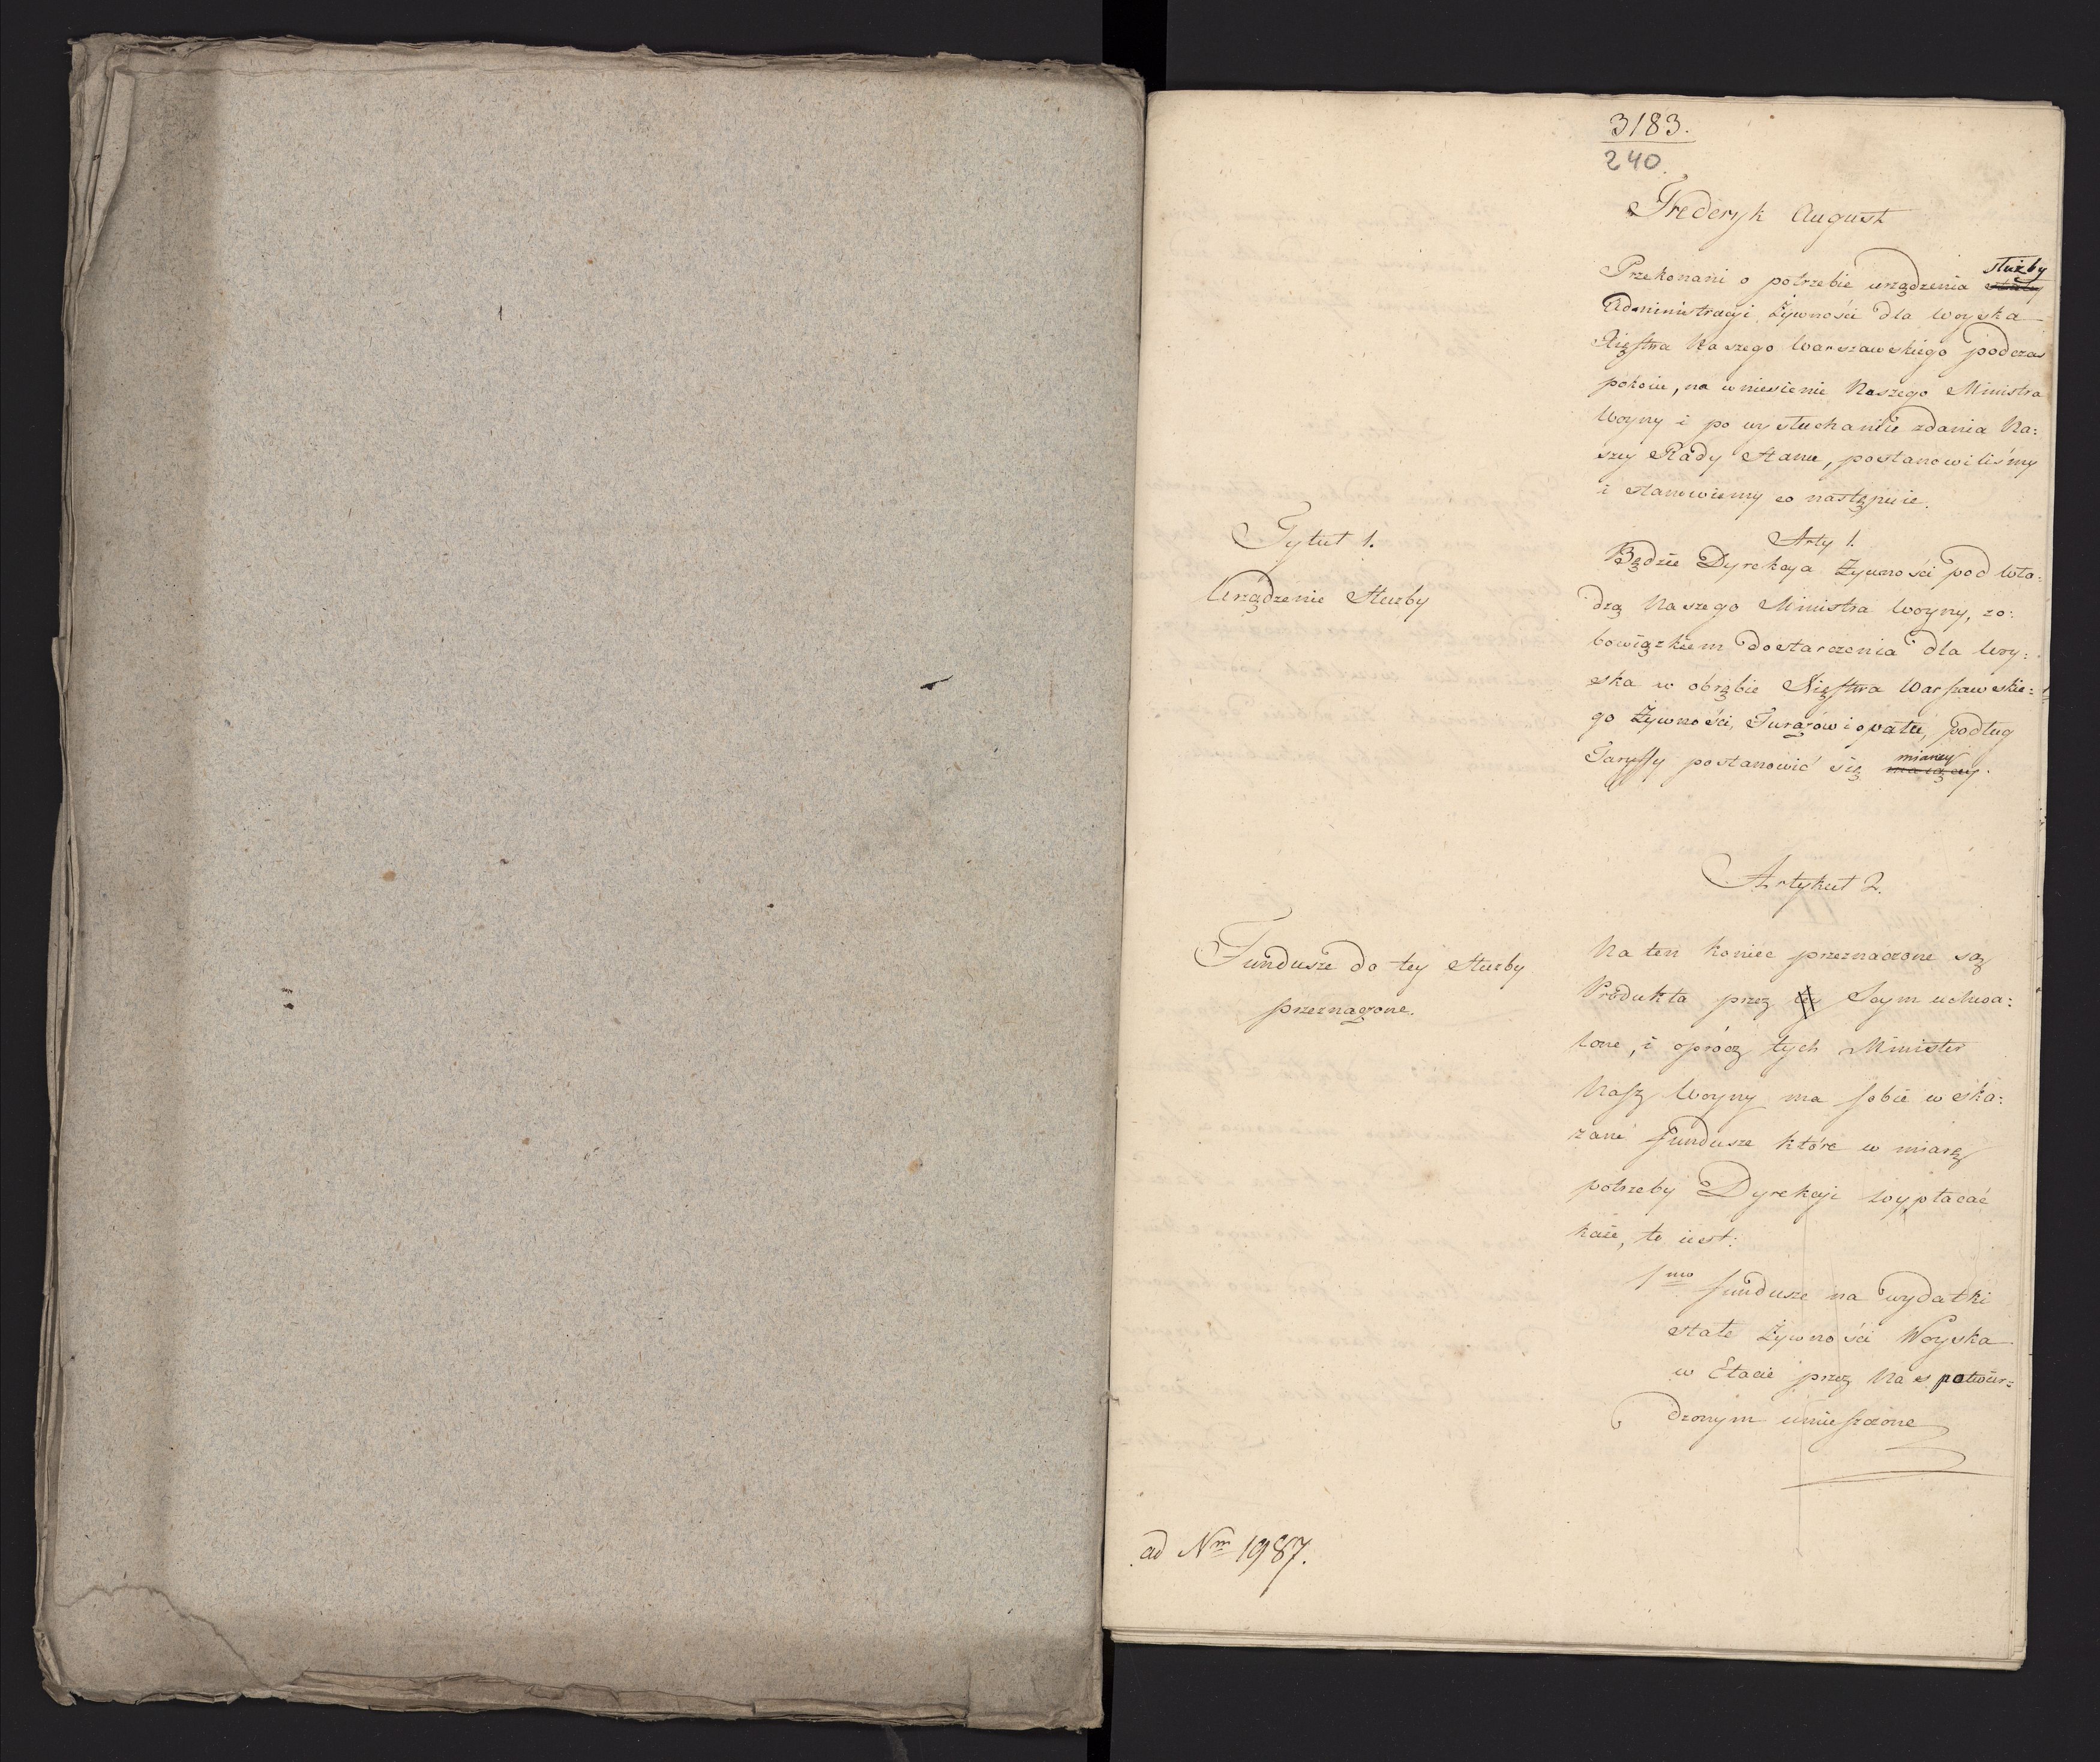 3183.
240.
Frederyk August
Przekonani o potrzebie urządzenia służby
Administracyi Żywności dla woyska
Xięstwa Naszego Warszawskiego podczas
pokoiu, na wniesienie Naszego Ministra
Woyny i po wysłuchaniu zdania Na:
szey Rady Stanu, postanowiliśmy
i stanowiemy co następuie.
Tytuł 1.
Urządzenie Służby
Arty 1.
Będzie Dyrekcya Żywności pod wła:
dzą Naszego Ministra Woyny, zo:
bowiązkiem dostarczenia dla Woy:
ska w obrębie Xięstwa Warszawskie:
go Żywności, Furażów i opału, podług
Taryffy postanowić się mianey
maiącey.
Artykuł 2.
Fundusze do tey Służby
przeznaczone.
Na ten koniec przeznaczone są
Produkta przez Seym uchwa:
lone, i oprócz tych Minister
Nasz Woyny ma sobie wska:
zane fundusze które w miarę
potrzeby Dyrekcyi wypłacać
każe, to iest:
1mo fundusze na wydatki
stałe Żywności Woyska
w Etacie przez Nas potwier:
dzonym umieszczone
ad Nrm 1987.